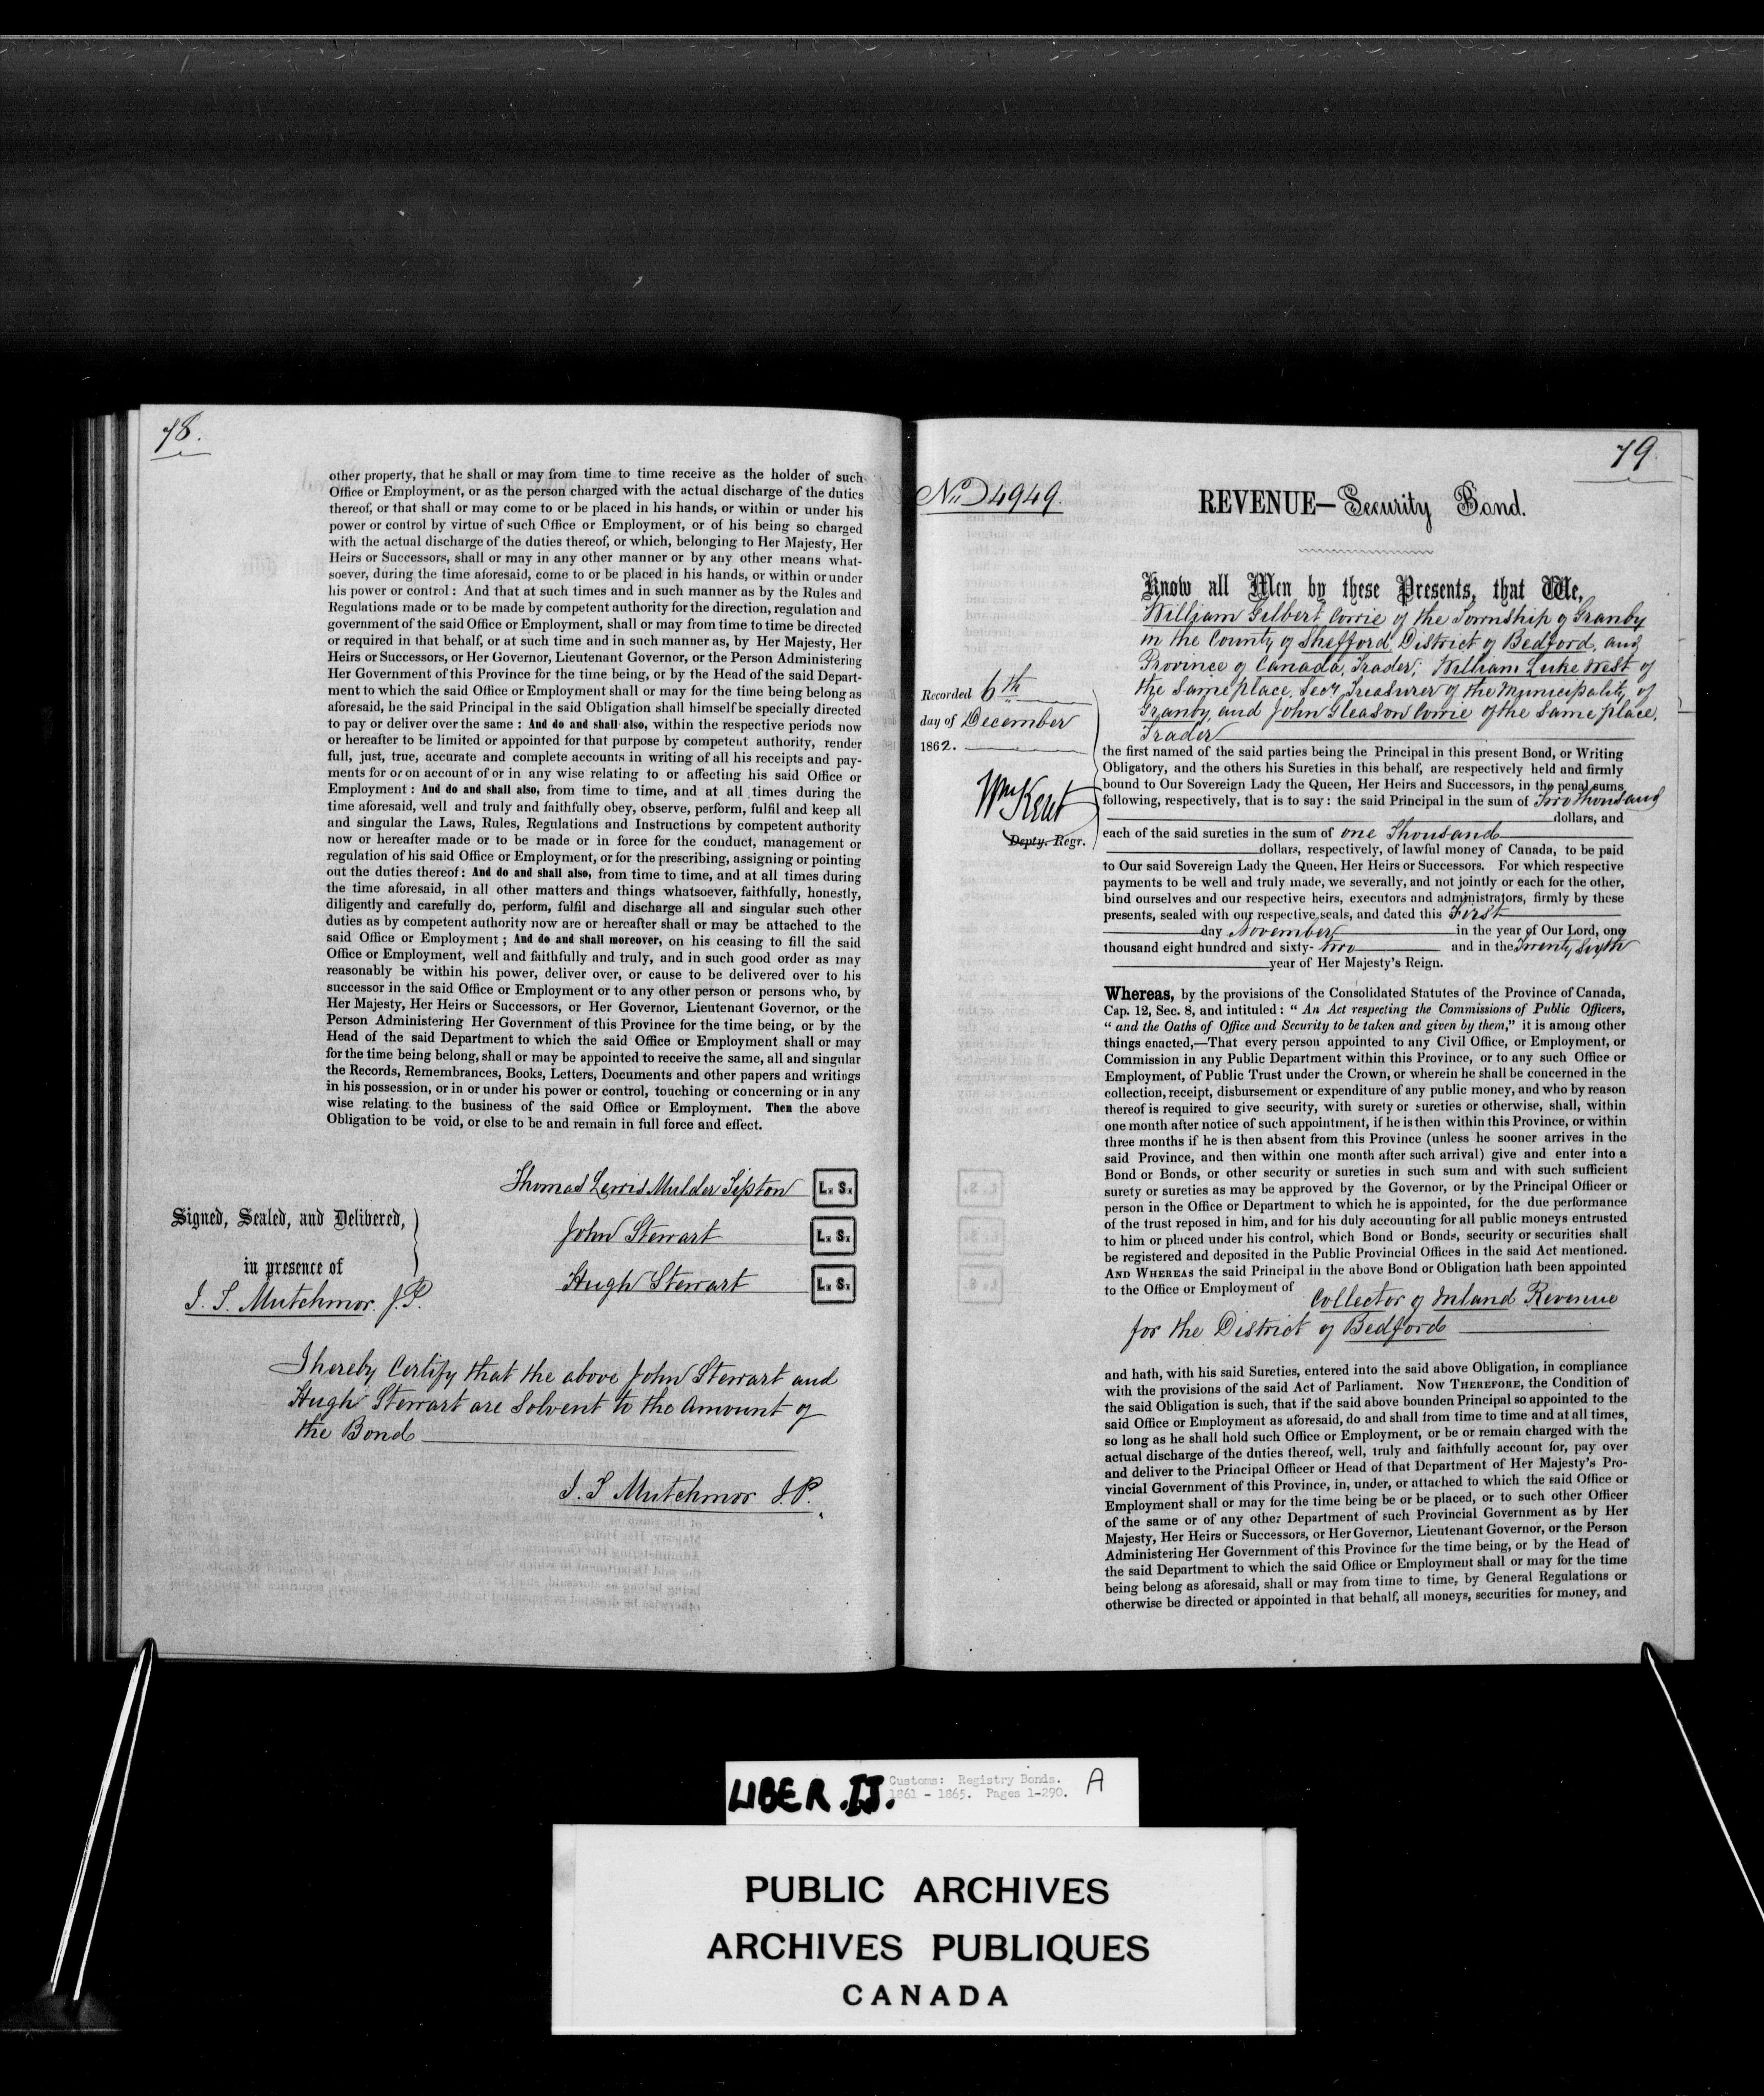 78.
other property, that he shall or may from time to time receive as the holder of such
Office or Employment, or as the person charged with the actual discharge of the duties
thereof, or that shall or may come to or be placed in his hands, or within or under his
power or control by virtue of such Office or Employment, or of his being so charged
with the actual discharge of the duties thereof, or which, belonging to Her Majesty, Her
Heirs or Successors, shall or may in any other manner or by any other means what-
soever, during the time aforesaid, come to or be placed in his hands, or within or under
his power or control : And that at such times and in such manner as by the Rules and
Regulations made or to be made by competent authority for the direction, regulation and
government of the said Office or Employment, shall or may from time to time be directed
or required in that behalf, or at such time and in such manner as, by Her Majesty, Her
Heirs or Successors, or Her Governor, Lieutenant Governor, or the Person Administering
Her Government of this Province for the time being, or by the Head of the said Depart-
ment to which the said Office or Employment shall or may for the time being belong as
aforesaid, he the said Principal in the said Obligation shall himself be specially directed
to pay or deliver over the same : And do and shall also, within the respective periods now
or hereafter to be limited or appointed for that purpose by competent authority, render
full, just, true, accurate and complete accounts in writing of all his receipts and pay-
ments for or on account of or in any wise relating to or affecting his said Office or
Employment : And do and shall also, from time to time, and at all times during the
time aforesaid, well and truly and faithfully obey, observe, perform, fulfil and keep all
and singular the Laws, Rules, Regulations and Instructions by competent authority
now or hereafter made or to be made or in force for the conduct, management or
regulation of his said Office or Employment, or for the prescribing, assigning or pointing
out the duties thereof : And do and shall also, from time to time, and at all times during
the time aforesaid, in all other matters and things whatsoever, faithfully, honestly,
diligently and carefully do, perform, fulfil and discharge all and singular such other
duties as by competent authority now are or hereafter shall or may be attached to the
said Office or Employment ; And do and shall moreover, on his ceasing to fill the said
Office or Employment, well and faithfully and truly, and in such good order as may
reasonably be within his power, deliver over, or cause to be delivered over to his
successor in the said Office or Employment or to any other person or persons who, by
Her Majesty, Her Heirs or Successors, or Her Governor, Lieutenant Governor, or the
Person Administering Her Government of this Province for the time being, or by the
Head of the said Department to which the said Office or Employment shall or may
for the time being belong, shall or may be appointed to receive the same, all and singular
the Records, Remembrances, Books, Letters, Documents and other papers and writings
in his possession, or in or under his power or control, touching or concerning or in any
wise relating to the business of the said Office or Employment. Then the above
Obligation to be void, or else to be and remain in full force and effect.
Thomas Lewis Mulder Sipton L. S.
Signed, Sealed, and Delivered,
John Stewart L. S.
in presence of
Hugh Stewart L. S.
J. S. Mutchmor. J.P.
I hereby Certify that the above John Stewart and
Hugh Stewart are Solvent to the Amount of
the Bond
J. S Mutchmor J.P.
79.
No 4949.
REVENUE—Security Bond.
Know all Men by these Presents, that We,
William Gilbert Corrie of the Township of Granby
in the County of Shefford, District of Bedford, and
Province of Canada, Trader; William Luke West of
the Same place, Secy Treasurer of the Municipality of
Granby, and John Gleason Corrie of the Same place,
Trader
Recorded 6th
day of December
1862.
Wm Kent
Depty. Regr.
the first named of the said parties being the Principal in this present Bond, or Writing
Obligatory, and the others his Sureties in this behalf, are respectively held and firmly
bound to Our Sovereign Lady the Queen, Her Heirs and Successors, in the penal sums
following, respectively, that is to say : the said Principal in the sum of Two Thousand
dollars, and
each of the said sureties in the sum of one Thousand
dollars, respectively, of lawful money of Canada, to be paid
to Our said Sovereign Lady the Queen, Her Heirs or Successors. For which respective
payments to be well and truly made, we severally, and not jointly or each for the other,
bind ourselves and our respective heirs, executors and administrators, firmly by these
presents, sealed with our respective seals, and dated this First
day November in the year of Our Lord, one
thousand eight hundred and sixty- two and in the Twenty Sixth
year of Her Majesty's Reign.
Whereas, by the provisions of the Consolidated Statutes of the Province of Canada,
Cap. 12, Sec. 8, and intituled : " An Act respecting the Commissions of Public Officers,
" and the Oaths of Office and Security to be taken and given by them," it is among other
things enacted,—That every person appointed to any Civil Office, or Employment, or
Commission in any Public Department within this Province, or to any such Office or
Employment, of Public Trust under the Crown, or wherein he shall be concerned in the
collection, receipt, disbursement or expenditure of any public money, and who by reason
thereof is required to give security, with surety or sureties or otherwise, shall, within
one month after notice of such appointment, if he is then within this Province, or within
three months if he is then absent from this Province (unless he sooner arrives in the
said Province, and then within one month after such arrival) give and enter into a
Bond or Bonds, or other security or sureties in such sum and with such sufficient
surety or sureties as may be approved by the Governor, or by the Principal Officer or
person in the Office or Department to which he is appointed, for the due performance
of the trust reposed in him, and for his duly accounting for all public moneys entrusted
to him or placed under his control, which Bond or Bonds, security or securities shall
be registered and deposited in the Public Provincial Offices in the said Act mentioned.
AND WHEREAS the said Principal in the above Bond or Obligation hath been appointed
to the Office or Employment of Collector of Inland Revenue
for the District of Bedford
and hath, with his said Sureties, entered into the said above Obligation, in compliance
with the provisions of the said Act of Parliament. NOW THEREFORE, the Condition of
the said Obligation is such, that if the said above bounden Principal so appointed to the
said Office or Employment as aforesaid, do and shall from time to time and at all times,
so long as he shall hold such Office or Employment, or be or remain charged with the
actual discharge of the duties thereof, well, truly and faithfully account for, pay over
and deliver to the Principal Officer or Head of that Department of Her Majesty's Pro-
vincial Government of this Province, in, under, or attached to which the said Office or
Employment shall or may for the time being be or be placed, or to such other Officer
of the same or of any other Department of such Provincial Government as by Her
Majesty, Her Heirs or Successors, or Her Governor, Lieutenant Governor, or the Person
Administering Her Government of this Province for the time being, or by the Head of
the said Department to which the said Office or Employment shall or may for the time
being belong as aforesaid, shall or may from time to time, by General Regulations or
otherwise be directed or appointed in that behalf, all moneys, securities for money, and
LIBER. IJ. Customs: Registry Bonds. A
1861 - 1865. Pages 1-290.
PUBLIC ARCHIVES
ARCHIVES PUBLIQUES
CANADA